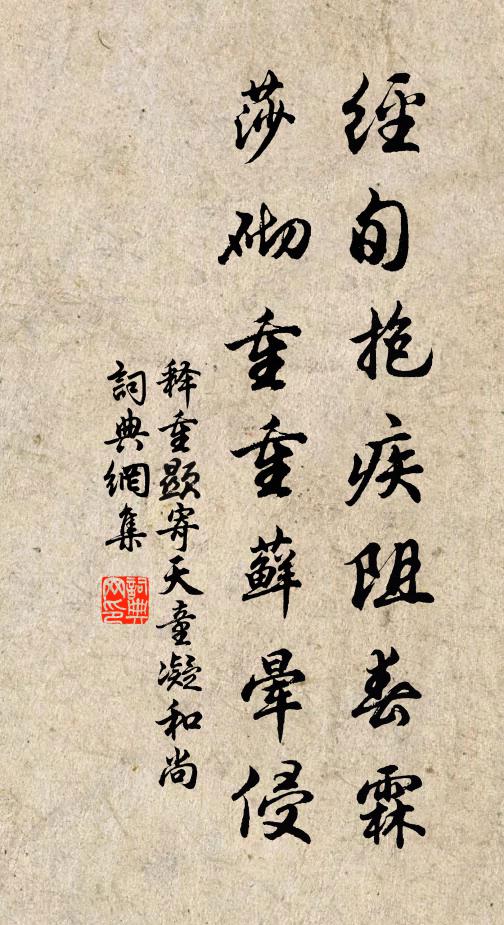 經旬抱疾阻春霖
莎砌重重蘚暈侵
释重顯寄天童凝和尚
詞典網集
詞典网印